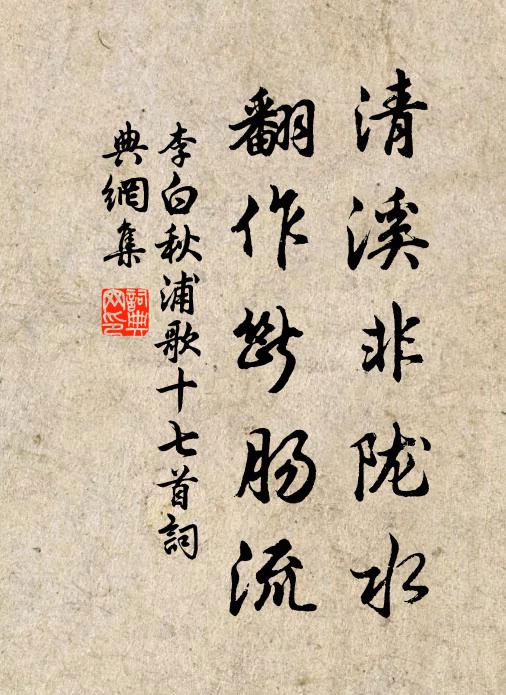 清溪非陇水
翻作断肠流
李白秋浦歌十七首詞
典網集
詞典網印